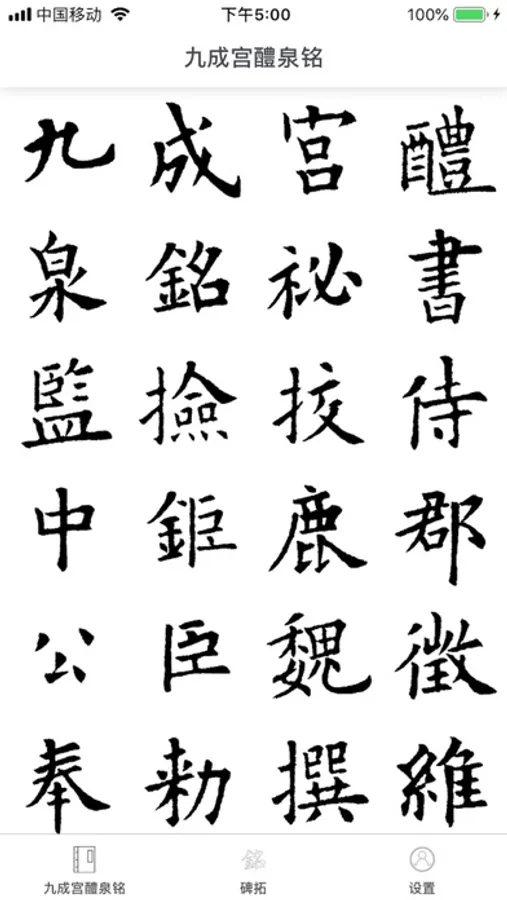 中国移动 下午5:00 100%
九成宫醴泉铭
九成宮醴
泉銘祕書
監撿挍侍
中鉅鹿郡
公臣魏徵
奉勑撰維
九成宫醴泉铭 碑拓 设置
銘